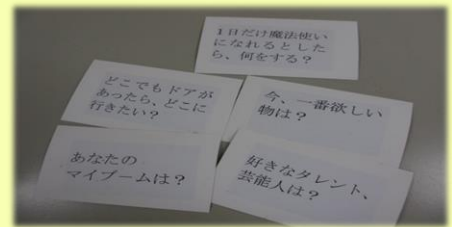 1日だけ魔法使い
になれるとした
ら、何をする？
どこでもドアが
あったら、どこに
行きたい？
今、一番欲しい
物は？
あなたの
マイブームは？
好きなタレント、
芸能人は？